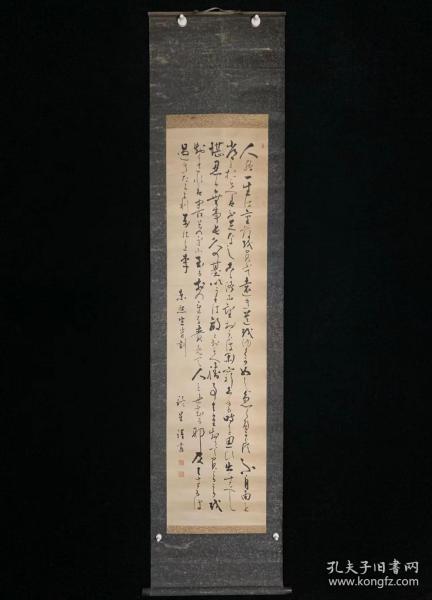 人の一生は重荷を負て遠き道を行くが如し急くへからす不自由を
常と思へは不足なし心に望おこらは困窮したる時を思ひ出すへし
堪忍は無事長久の基いかりは敵と思へ勝事はかり知て負る事を
知らされは害其身に至る己を責て人を責るな及はさるは
過きたるより
東照宮遺訓
謹書
孔夫子旧书网
www.kongfz.com